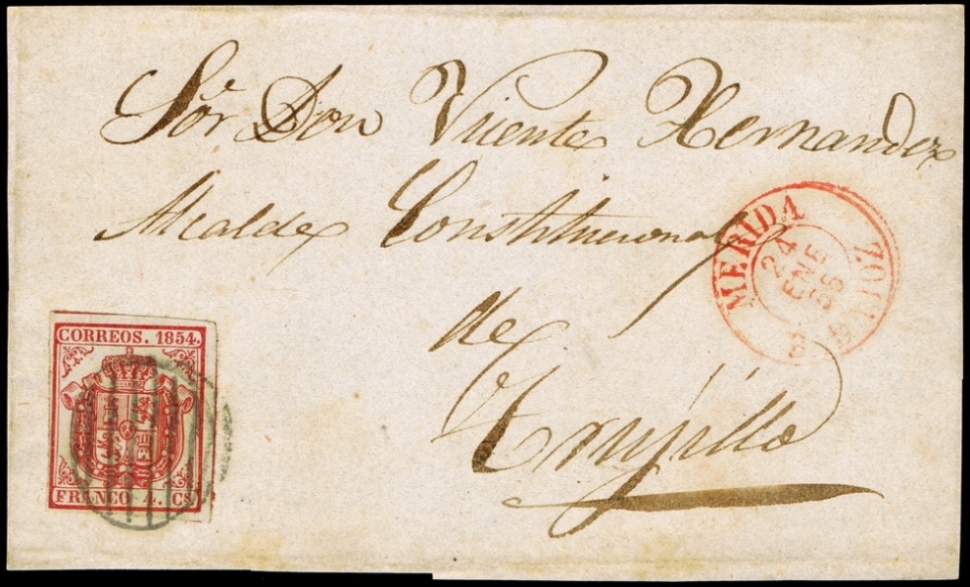 Sor. Don Vicente Hernandez
Alcalde Constitucional
de
Trujillo
MERIDA
24
ENE
56
CORREOS. 1854.
FRANCO 4. CS